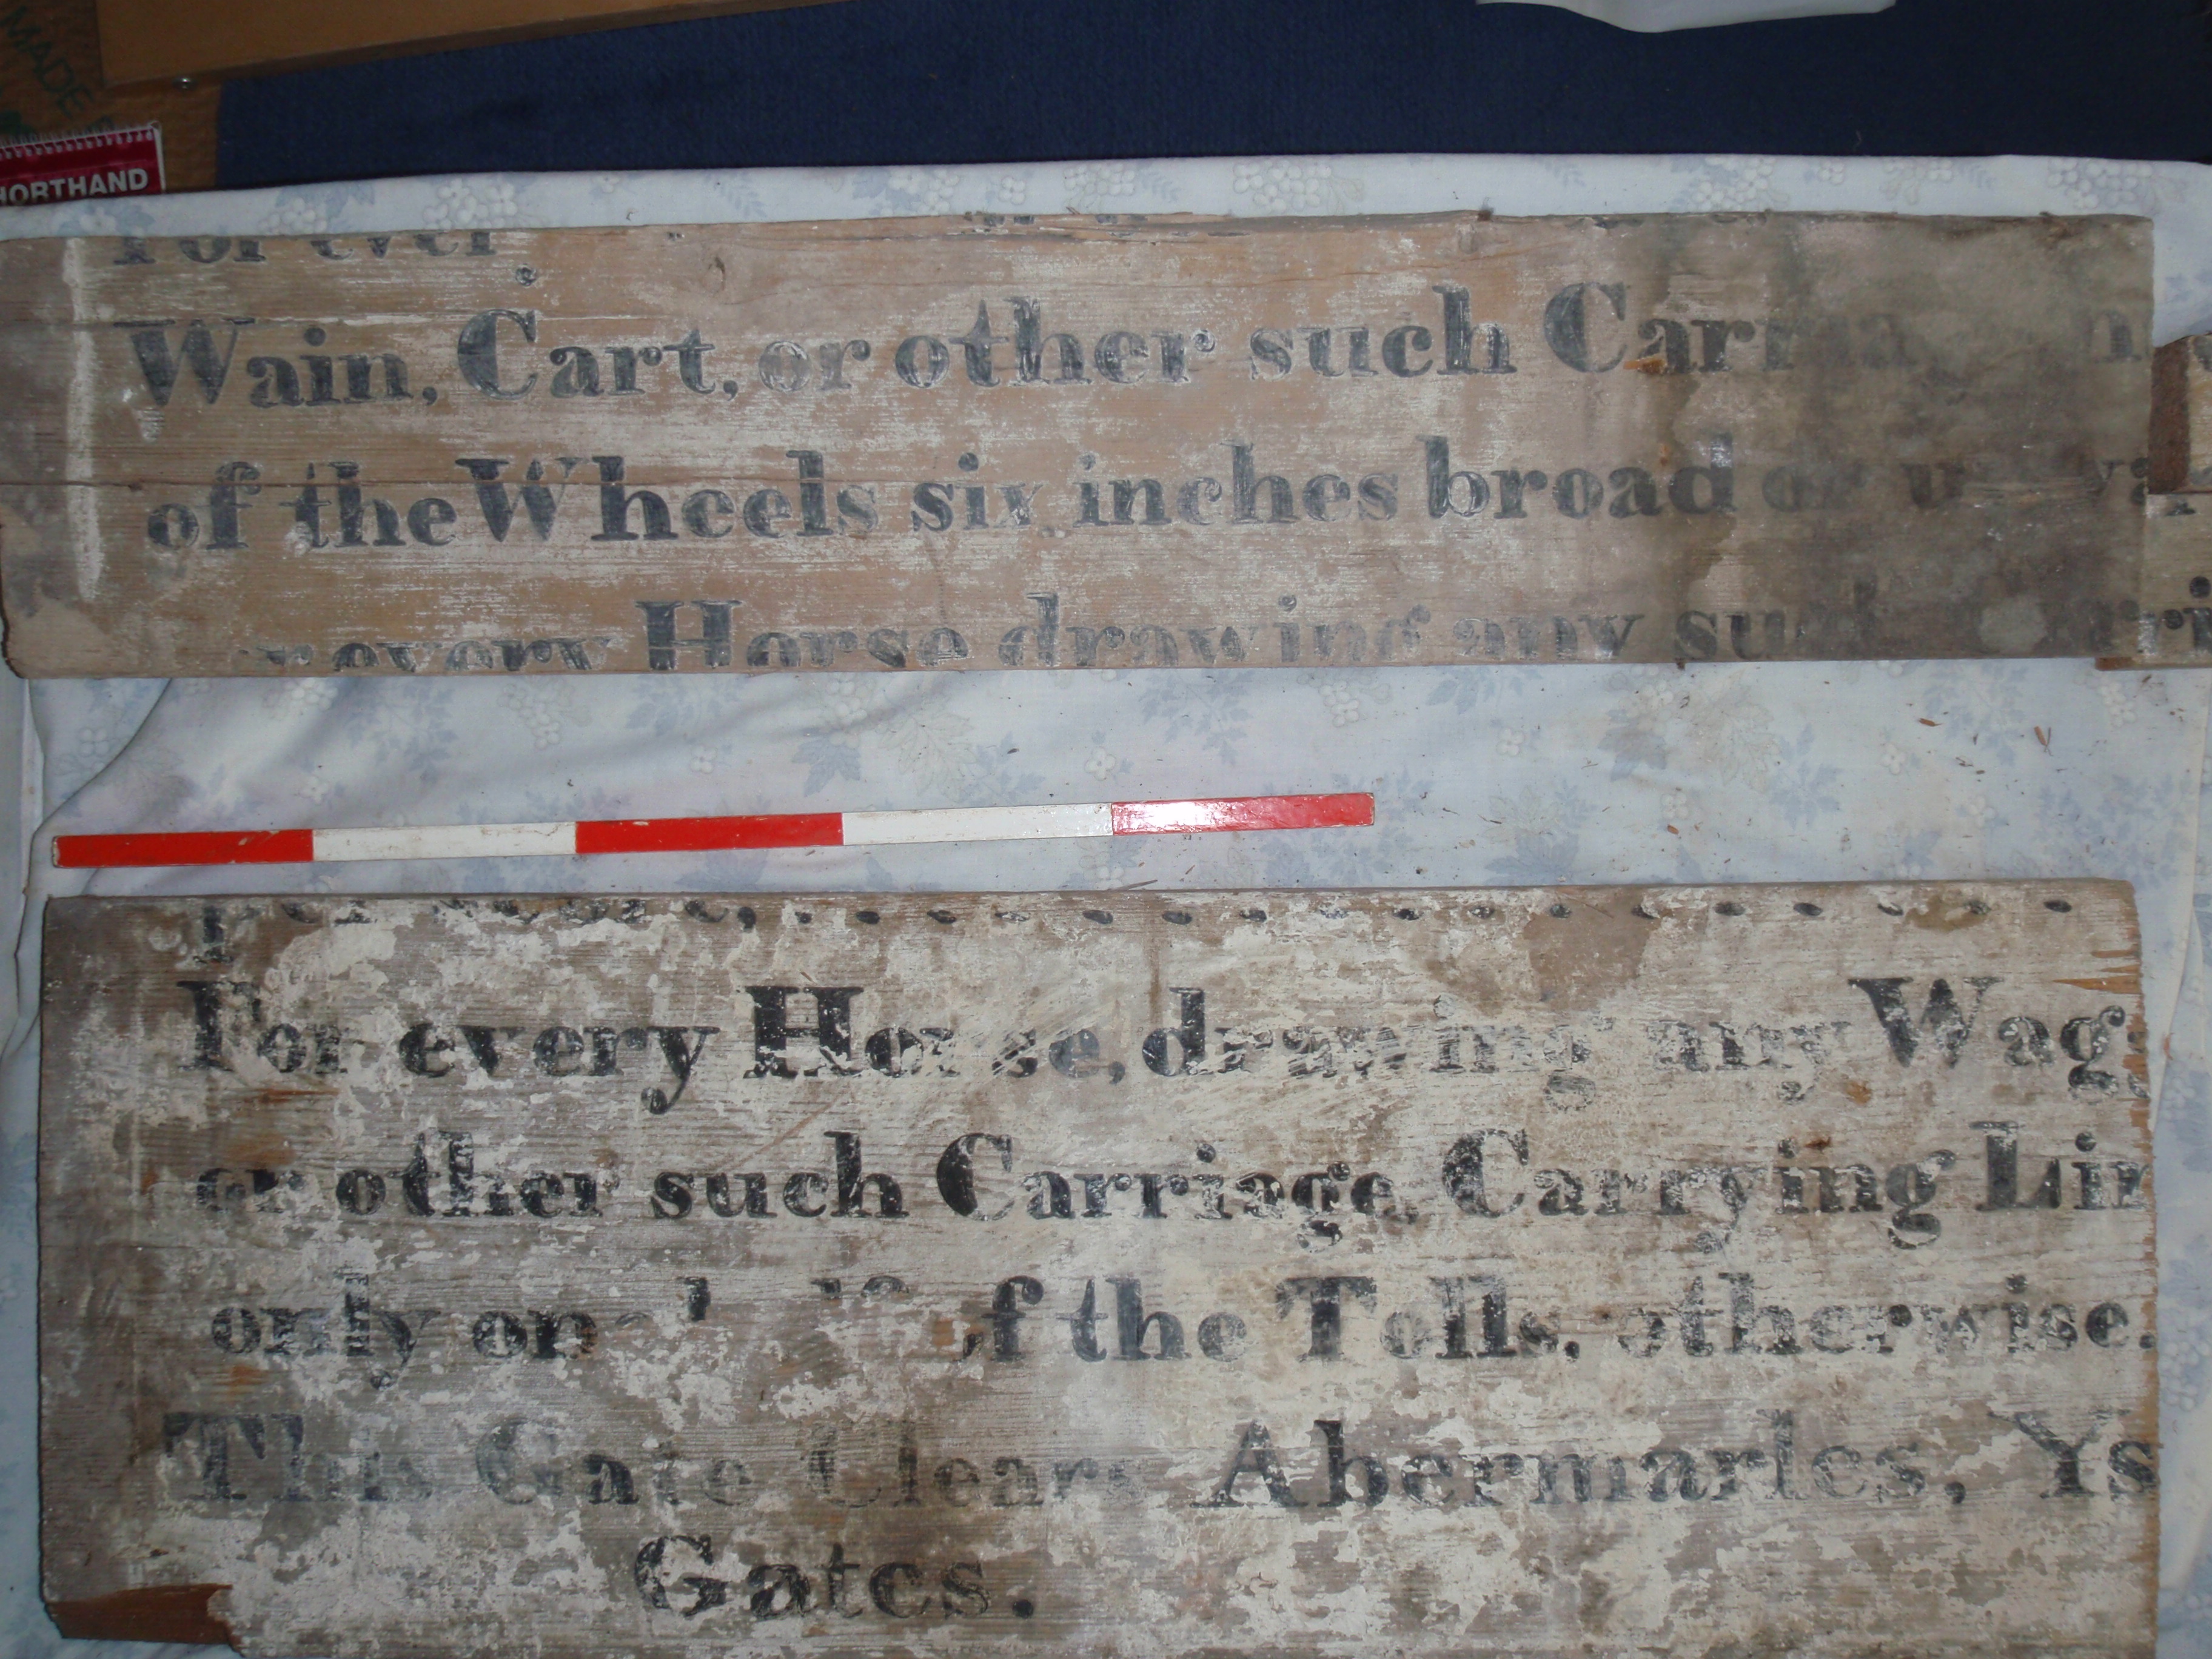 MADE
SHORTHAND
For ever
Wain, Cart, or other such
of the Wheels six inches broad or
every Horse drawing any such
For every Horse, drawing any
or other such Carriage, Carrying
only of the Tolls, otherwise.
This Gate Clears Abermarles,
Gates.